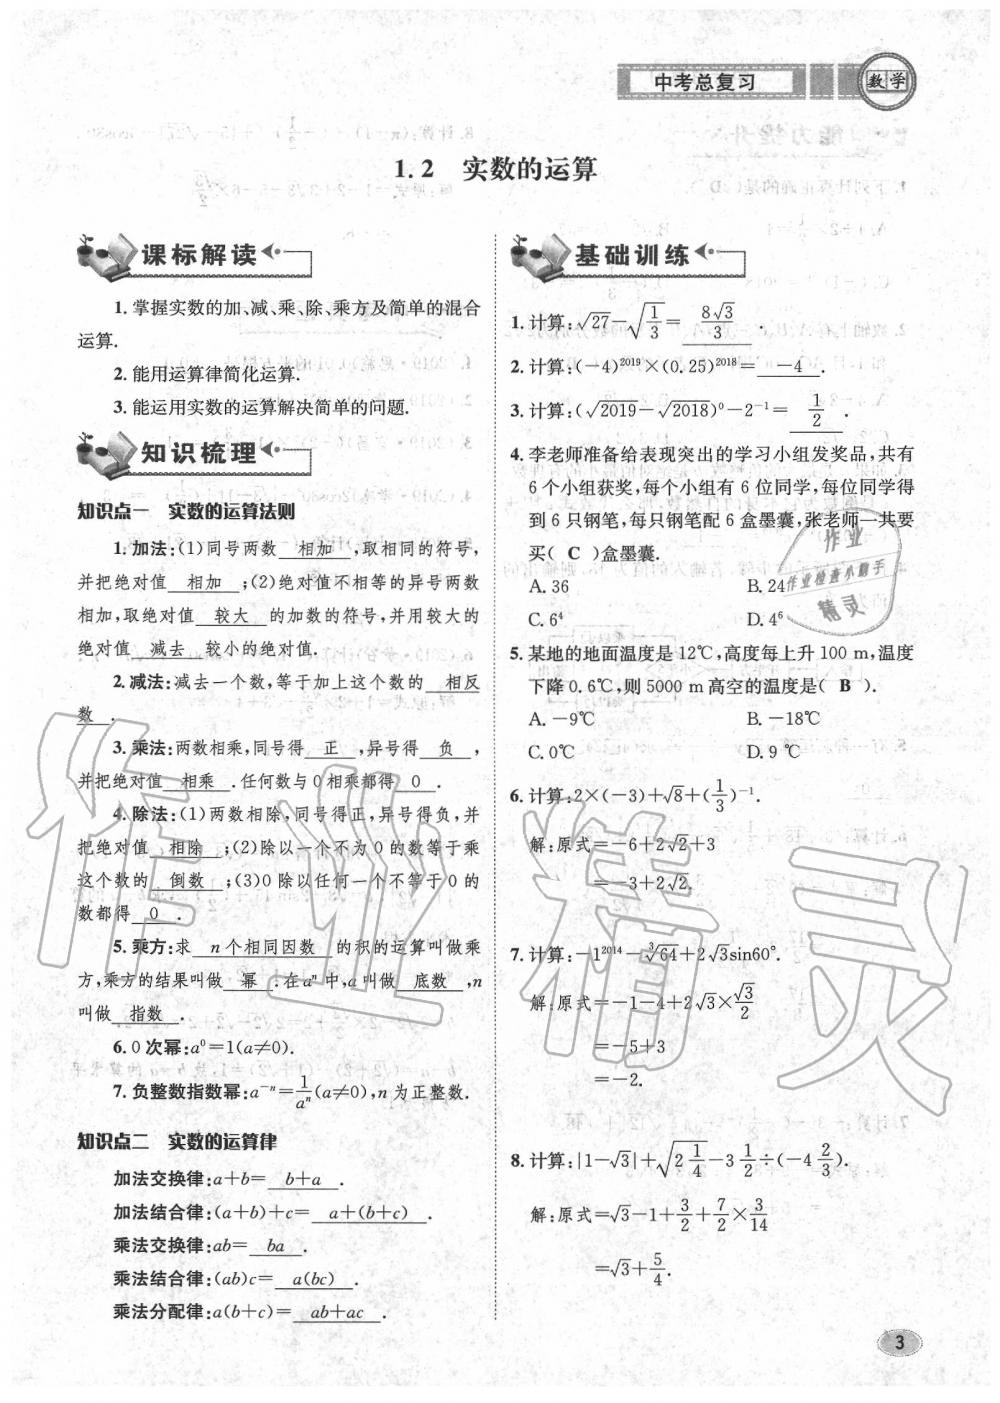 中考总复习
数学
1.2 实数的运算
课标解读
1. 掌握实数的加、减、乘、除、乘方及简单的混合
运算.
2. 能用运算律简化运算.
3. 能运用实数的运算解决简单的问题.
知识梳理
知识点一 实数的运算法则
1. 加法:(1)同号两数 相加 ,取相同的符号,
并把绝对值 相加 ;(2)绝对值不相等的异号两数
相加,取绝对值 较大 的加数的符号,并用较大的
绝对值 减去 较小的绝对值.
2. 减法:减去一个数,等于加上这个数的 相反
数 .
3. 乘法:两数相乘,同号得 正 ,异号得 负 ,
并把绝对值 相乘 .任何数与0相乘都得 0 .
4. 除法:(1)两数相除,同号得正,异号得负,并
把绝对值 相除 ;(2)除以一个不为0的数等于乘
这个数的 倒数 ;(3)0除以任何一个不等于0的
数都得 0 .
5. 乘方:求 n个相同因数 的积的运算叫做乘
方,乘方的结果叫做 幂 .在aⁿ中,a叫做 底数 ,n
叫做 指数 .
6. 0次幂:a⁰=1(a≠0).
7. 负整数指数幂:a⁻ⁿ=1/aⁿ(a≠0),n为正整数.
知识点二 实数的运算律
加法交换律:a+b= b+a .
加法结合律:(a+b)+c= a+(b+c) .
乘法交换律:ab= ba .
乘法结合律:(ab)c= a(bc) .
乘法分配律:a(b+c)= ab+ac .
基础训练
1. 计算:√27-√(1/3)= 8√3/3 .
2. 计算:(-4)²⁰¹⁹×(0.25)²⁰¹⁸= -4 .
3. 计算:(√2019-√2018)⁰-2⁻¹= 1/2 .
4. 李老师准备给表现突出的学习小组发奖品,共有
6个小组获奖,每个小组有6位同学,每位同学得
到6只钢笔,每只钢笔配6盒墨囊,张老师一共要
买( C )盒墨囊.
A. 36 B. 24
C. 6⁴ D. 4⁶
5. 某地的地面温度是12℃,高度每上升100 m,温度
下降0.6℃,则5000 m高空的温度是( B ).
A. -9℃ B. -18℃
C. 0℃ D. 9℃
6. 计算:2×(-3)+√8+(1/3)⁻¹.
解:原式=-6+2√2+3
=-3+2√2.
7. 计算:-1²⁰¹⁴-³√64+2√3sin60°.
解:原式=-1-4+2√3×√3/2
=-5+3
=-2.
8. 计算:|1-√3|+√(2 1/4)-3 1/2÷(-4 2/3).
解:原式=√3-1+3/2+7/2×3/14
=√3+5/4.
3
作业
作业检查小助手
精灵
作业精灵